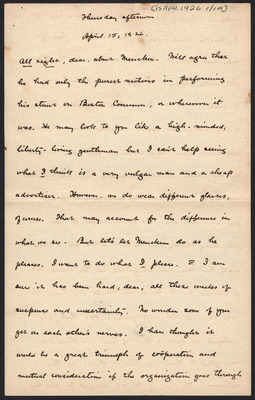 [15 APR. 1926 1/1A]
Thursday afternoon
April 15, 1926.
All right, dear, about Mencken. Will agree that
he had only the purest motives in performing
his stunt on Boston Common, or wherever it
was. He may look to you like a high-minded,
liberty-loving gentleman but I can't help seeing
what I think is a very vulgar man and a cheap
advertiser. However, we do wear different glasses,
of course. That may account for the difference in
what we see. But let's let Mencken do as he
pleases. I want to do what I please. I am
sure it has been hard, dear, all these weeks of
suspense and uncertainty. No wonder some of you
get on each other's nerves. I have thought it
would be a great triumph of coöperation and
mutual consideration if the organization goes through